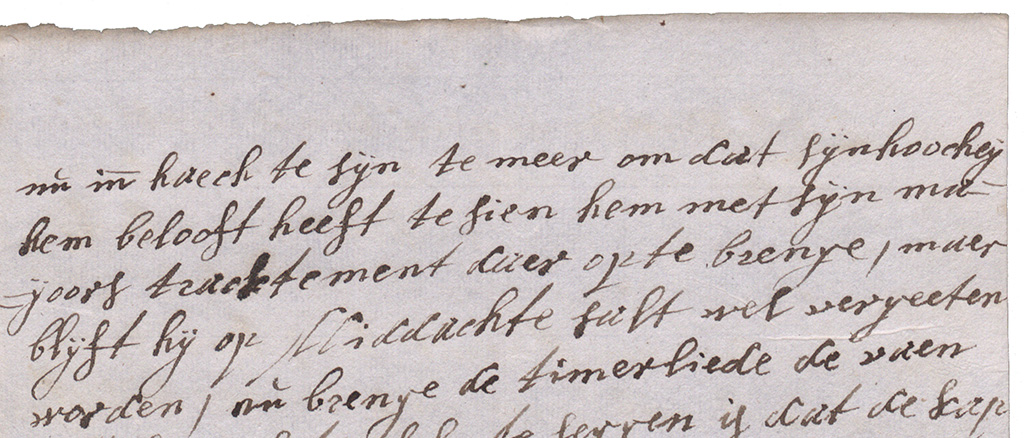 nu in haech te sÿn te meer om dat sÿnhoocheÿ
hem belooft heeft te sien hem met sÿn ma
-joors tracktement daer op te brenge, maer
blÿft hÿ op Middachte salt wel vergeeten
worden, nu brenge de timerliede de vaen
te seggen is dat de kap